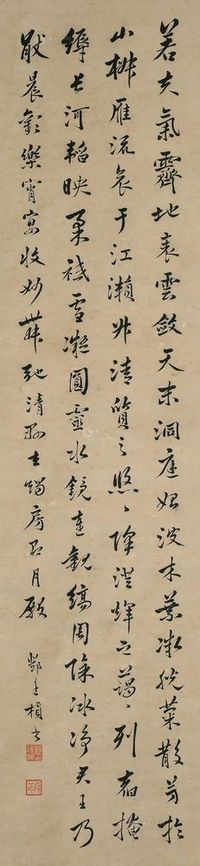 若夫氣霽地表雲斂天末洞庭始波木葉微脫菊散芳於
山椒雁流哀于江瀨升清質之悠悠降澄輝之藹藹列宿掩
縟長河韜映柔祇雪凝圓靈水鏡連觀縞周除冰淨君王乃
厭晨歡樂宵宴收妙舞弛清縣去燭房即月殿